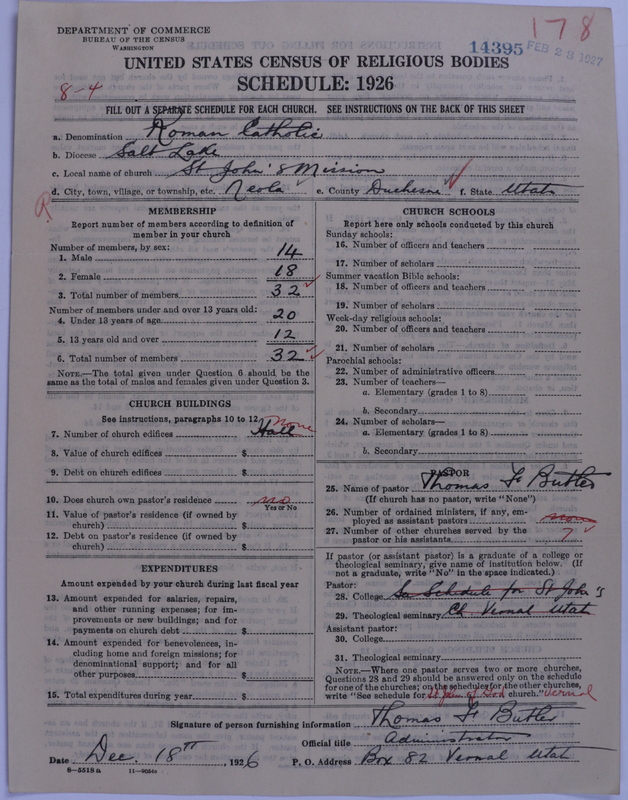 178
DEPARTMENT OF COMMERCE
BUREAU OF THE CENSUS
WASHINGTON
14395 FEB 23 1927
UNITED STATES CENSUS OF RELIGIOUS BODIES
SCHEDULE: 1926
8-4
FILL OUT A SEPARATE SCHEDULE FOR EACH CHURCH. SEE INSTRUCTIONS ON THE BACK OF THIS SHEET
a. Denomination Roman Catholic
b. Diocese Salt Lake
c. Local name of church St John's Mission
d. City, town, village, or township, etc. Neola e. County Duchesne f. State Utah
R
MEMBERSHIP
Report number of members according to definition of
member in your church
Number of members, by sex:
1. Male 14
2. Female 18
3. Total number of members 32
Number of members under and over 13 years old:
4. Under 13 years of age 20
5. 13 years old and over 12
6. Total number of members 32
NOTE.—The total given under Question 6 should be the
same as the total of males and females given under Question 3.
CHURCH BUILDINGS
See instructions, paragraphs 10 to 12 none
7. Number of church edifices Hall
8. Value of church edifices $
9. Debt on church edifices $
10. Does church own pastor's residence no
Yes or No
11. Value of pastor's residence (if owned by
church) $
12. Debt on pastor's residence (if owned by
church) $
EXPENDITURES
Amount expended by your church during last fiscal year
13. Amount expended for salaries, repairs,
and other running expenses; for im-
provements or new buildings; and for
payments on church debt $
14. Amount expended for benevolences, in-
cluding home and foreign missions; for
denominational support; and for all
other purposes $
15. Total expenditures during year $
CHURCH SCHOOLS
Report here only schools conducted by this church
Sunday schools:
16. Number of officers and teachers
17. Number of scholars
Summer vacation Bible schools:
18. Number of officers and teachers
19. Number of scholars
Week-day religious schools:
20. Number of officers and teachers
21. Number of scholars
Parochial schools:
22. Number of administrative officers
23. Number of teachers—
a. Elementary (grades 1 to 8)
b. Secondary
24. Number of scholars—
a. Elementary (grades 1 to 8)
b. Secondary
PASTOR
25. Name of pastor Thomas F Butler
(If church has no pastor, write "None")
26. Number of ordained ministers, if any, em-
ployed as assistant pastors none
27. Number of other churches served by the
pastor or his assistants 7
If pastor (or assistant pastor) is a graduate of a college or
theological seminary, give name of institution below. (If
not a graduate, write "No" in the space indicated.)
Pastor:
28. College See Schedule for St John's
29. Theological seminary Ch. Vernal Utah
Assistant pastor:
30. College
31. Theological seminary
NOTE.—Where one pastor serves two or more churches,
Questions 28 and 29 should be answered only on the schedule
for one of the churches; on the schedules for the other churches,
write "See schedule for St Jno of God church." Vernal
Signature of person furnishing information Thomas F Butler
Official title Administrator
Date Dec. 18th, 1926 P. O. Address Box 82 Vernal Utah
8—5518a 11—9054a